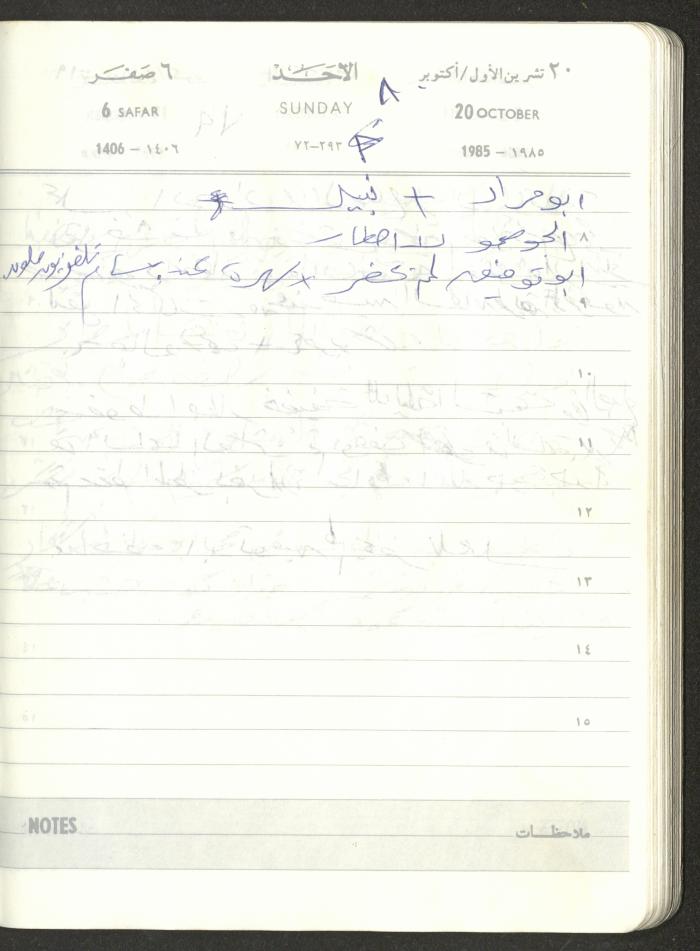 ٢٠ تشرين الأول/أكتوبر الأحَد ٦ صَفَر
20 OCTOBER SUNDAY 6 SAFAR
٨
1985 – ١٩٨٥ ٧٢–٢٩٣ 1406 – ١٤٠٦
ابو مراد + نبيل
٨ الجو صحو لا امطار
ابو توفيق لم تحضر + سهرة عند بسام تلفزيون ملون
٩
١٠
١١
١٢
١٣
١٤
١٥
NOTES ملاحظات